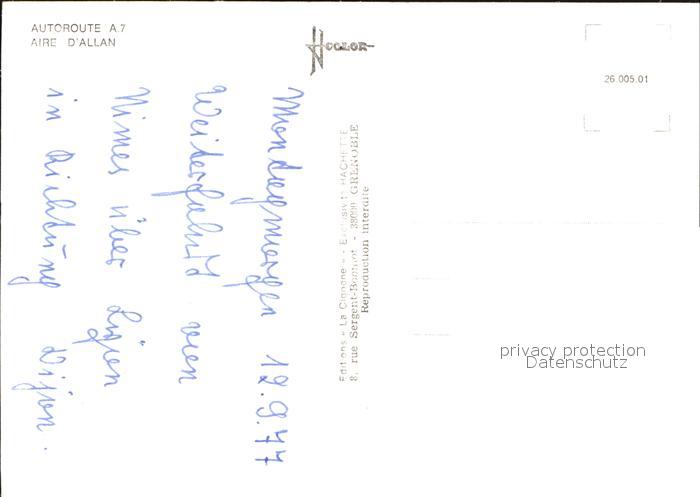 AUTOROUTE A.7
AIRE D'ALLAN
H COLOR
26.005.01
Montagmorgen 12.9.77
Weiterfahrt von
Nimes über Lyon
in Richtung Dijon.
Editions « La Cigogne » - Exclusivité HACHETTE
8, rue Sergent-Bobillot - 38000 GRENOBLE
Reproduction interdite
privacy protection
Datenschutz